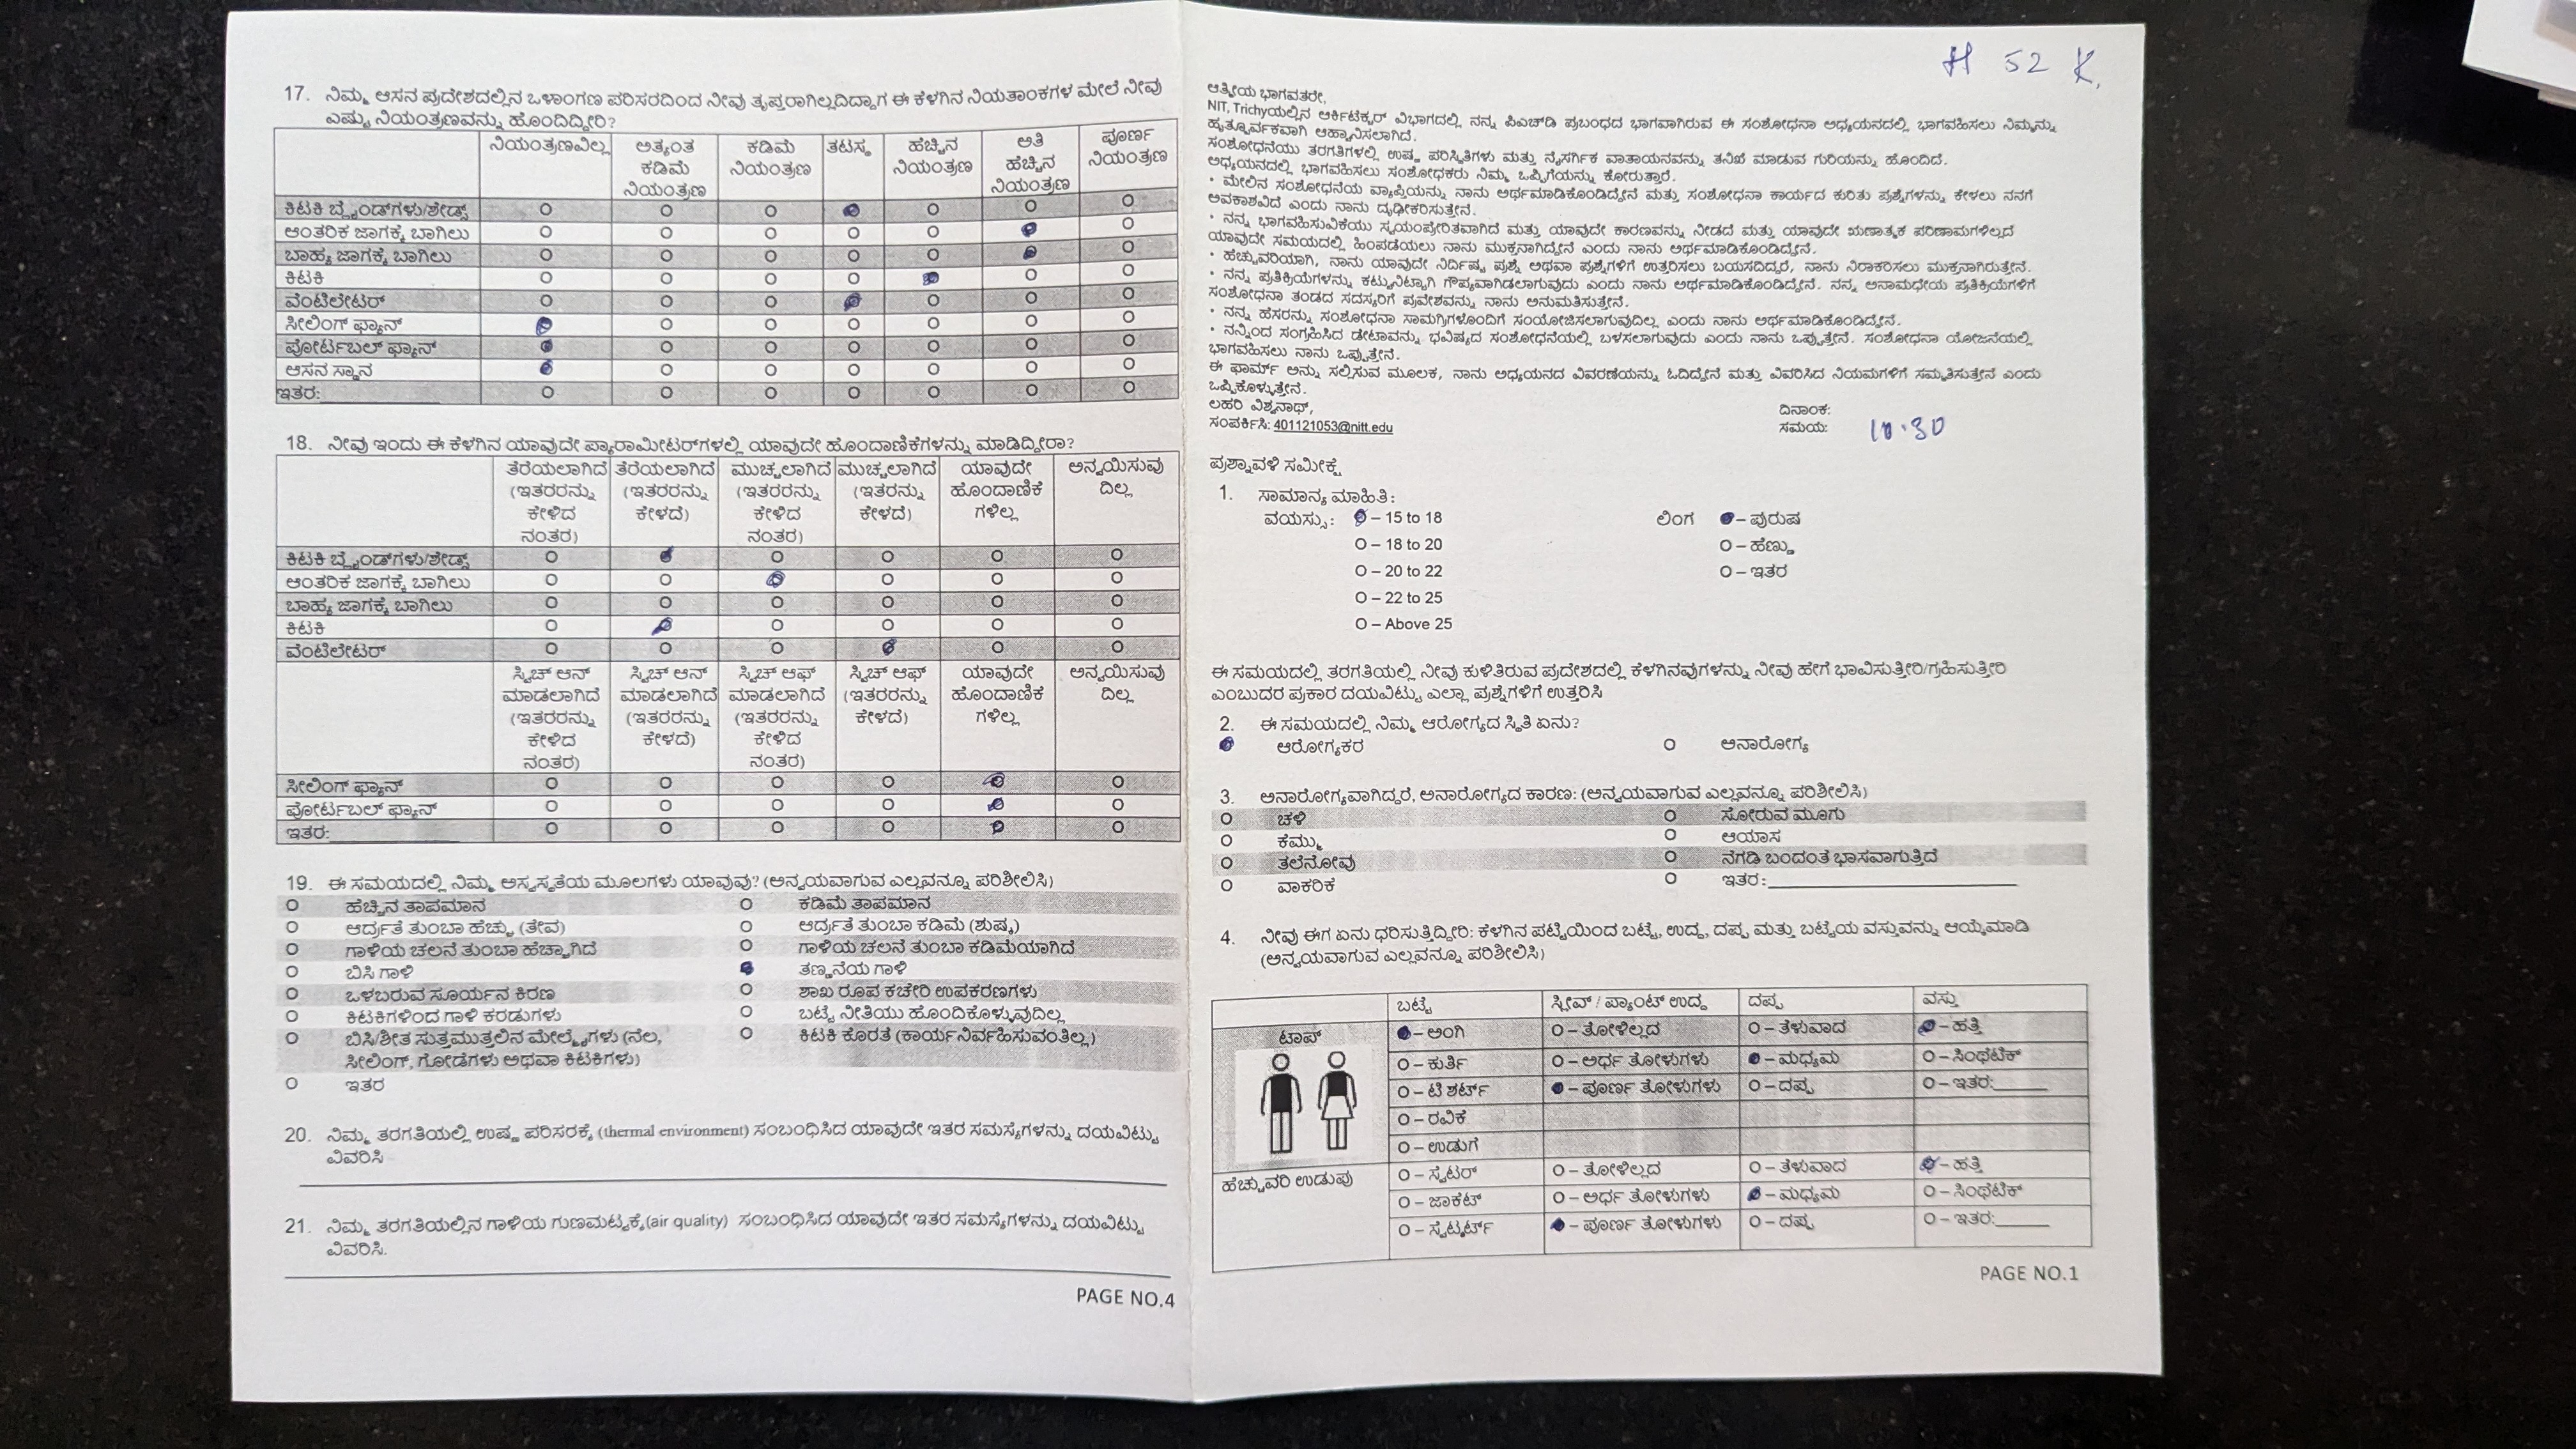 17. ನಿಮ್ಮ ಆಸನ ಪ್ರದೇಶದಲ್ಲಿನ ಒಳಾಂಗಣ ಪರಿಸರದಿಂದ ನೀವು ತೃಪ್ತರಾಗಿಲ್ಲದಿದ್ದಾಗ ಈ ಕೆಳಗಿನ ನಿಯತಾಂಕಗಳ ಮೇಲೆ ನೀವು
ಎಷ್ಟು ನಿಯಂತ್ರಣವನ್ನು ಹೊಂದಿದ್ದೀರಿ?
ನಿಯಂತ್ರಣವಿಲ್ಲ ಅತ್ಯಂತ ಕಡಿಮೆ ನಿಯಂತ್ರಣ ಕಡಿಮೆ ನಿಯಂತ್ರಣ ತಟಸ್ಥ ಹೆಚ್ಚಿನ ನಿಯಂತ್ರಣ ಅತಿ ಹೆಚ್ಚಿನ ನಿಯಂತ್ರಣ ಪೂರ್ಣ ನಿಯಂತ್ರಣ
ಕಿಟಕಿ ಬ್ಲೈಂಡ್‌ಗಳು/ಶೇಡ್ಸ್ O O O O O O O
ಆಂತರಿಕ ಜಾಗಕ್ಕೆ ಬಾಗಿಲು O O O O O O O
ಬಾಹ್ಯ ಜಾಗಕ್ಕೆ ಬಾಗಿಲು O O O O O O O
ಕಿಟಕಿ O O O O O O O
ವೆಂಟಿಲೇಟರ್ O O O O O O O
ಸೀಲಿಂಗ್ ಫ್ಯಾನ್ O O O O O O O
ಪೋರ್ಟಬಲ್ ಫ್ಯಾನ್ O O O O O O O
ಆಸನ ಸ್ಥಾನ O O O O O O O
ಇತರ: O O O O O O O
18. ನೀವು ಇಂದು ಈ ಕೆಳಗಿನ ಯಾವುದೇ ಪ್ಯಾರಾಮೀಟರ್‌ಗಳಲ್ಲಿ ಯಾವುದೇ ಹೊಂದಾಣಿಕೆಗಳನ್ನು ಮಾಡಿದ್ದೀರಾ?
ತೆರೆಯಲಾಗಿದೆ (ಇತರರನ್ನು ಕೇಳಿದ ನಂತರ) ತೆರೆಯಲಾಗಿದೆ (ಇತರರನ್ನು ಕೇಳದೆ) ಮುಚ್ಚಲಾಗಿದೆ (ಇತರರನ್ನು ಕೇಳಿದ ನಂತರ) ಮುಚ್ಚಲಾಗಿದೆ (ಇತರನ್ನು ಕೇಳದೆ) ಯಾವುದೇ ಹೊಂದಾಣಿಕೆ ಗಳಿಲ್ಲ ಅನ್ವಯಿಸುವು ದಿಲ್ಲ
ಕಿಟಕಿ ಬ್ಲೈಂಡ್‌ಗಳು/ಶೇಡ್ಸ್ O O O O O O
ಆಂತರಿಕ ಜಾಗಕ್ಕೆ ಬಾಗಿಲು O O O O O O
ಬಾಹ್ಯ ಜಾಗಕ್ಕೆ ಬಾಗಿಲು O O O O O O
ಕಿಟಕಿ O O O O O O
ವೆಂಟಿಲೇಟರ್ O O O O O O
ಸ್ವಿಚ್ ಆನ್ ಮಾಡಲಾಗಿದೆ (ಇತರರನ್ನು ಕೇಳಿದ ನಂತರ) ಸ್ವಿಚ್ ಆನ್ ಮಾಡಲಾಗಿದೆ (ಇತರರನ್ನು ಕೇಳದೆ) ಸ್ವಿಚ್ ಆಫ್ ಮಾಡಲಾಗಿದೆ (ಇತರರನ್ನು ಕೇಳಿದ ನಂತರ) ಸ್ವಿಚ್ ಆಫ್ (ಇತರರನ್ನು ಕೇಳದೆ) ಯಾವುದೇ ಹೊಂದಾಣಿಕೆ ಗಳಿಲ್ಲ ಅನ್ವಯಿಸುವು ದಿಲ್ಲ
ಸೀಲಿಂಗ್ ಫ್ಯಾನ್ O O O O O O
ಪೋರ್ಟಬಲ್ ಫ್ಯಾನ್ O O O O O O
ಇತರ: O O O O O O
19. ಈ ಸಮಯದಲ್ಲಿ ನಿಮ್ಮ ಅಸ್ವಸ್ಥತೆಯ ಮೂಲಗಳು ಯಾವುವು? (ಅನ್ವಯವಾಗುವ ಎಲ್ಲವನ್ನೂ ಪರಿಶೀಲಿಸಿ)
O ಹೆಚ್ಚಿನ ತಾಪಮಾನ O ಕಡಿಮೆ ತಾಪಮಾನ
O ಆರ್ದ್ರತೆ ತುಂಬಾ ಹೆಚ್ಚು (ತೇವ) O ಆರ್ದ್ರತೆ ತುಂಬಾ ಕಡಿಮೆ (ಶುಷ್ಕ)
O ಗಾಳಿಯ ಚಲನೆ ತುಂಬಾ ಹೆಚ್ಚಾಗಿದೆ O ಗಾಳಿಯ ಚಲನೆ ತುಂಬಾ ಕಡಿಮೆಯಾಗಿದೆ
O ಬಿಸಿ ಗಾಳಿ O ತಣ್ಣನೆಯ ಗಾಳಿ
O ಒಳಬರುವ ಸೂರ್ಯನ ಕಿರಣ O ಶಾಖ ರೂಪ ಕಚೇರಿ ಉಪಕರಣಗಳು
O ಕಿಟಕಿಗಳಿಂದ ಗಾಳಿ ಕರಡುಗಳು O ಬಟ್ಟೆ ನೀತಿಯು ಹೊಂದಿಕೊಳ್ಳುವುದಿಲ್ಲ
O ಬಿಸಿ/ಶೀತ ಸುತ್ತಮುತ್ತಲಿನ ಮೇಲ್ಮೈಗಳು (ನೆಲ, O ಕಿಟಕಿ ಕೊರತೆ (ಕಾರ್ಯನಿರ್ವಹಿಸುವಂತಿಲ್ಲ)
ಸೀಲಿಂಗ್, ಗೋಡೆಗಳು ಅಥವಾ ಕಿಟಕಿಗಳು)
O ಇತರ
20. ನಿಮ್ಮ ತರಗತಿಯಲ್ಲಿ ಉಷ್ಣ ಪರಿಸರಕ್ಕೆ (thermal environment) ಸಂಬಂಧಿಸಿದ ಯಾವುದೇ ಇತರ ಸಮಸ್ಯೆಗಳನ್ನು ದಯವಿಟ್ಟು
ವಿವರಿಸಿ
21. ನಿಮ್ಮ ತರಗತಿಯಲ್ಲಿನ ಗಾಳಿಯ ಗುಣಮಟ್ಟಕ್ಕೆ(air quality) ಸಂಬಂಧಿಸಿದ ಯಾವುದೇ ಇತರ ಸಮಸ್ಯೆಗಳನ್ನು ದಯವಿಟ್ಟು
ವಿವರಿಸಿ.
PAGE NO.4
H 52 K.
ಆತ್ಮೀಯ ಭಾಗವತರೇ,
NIT, Trichyಯಲ್ಲಿನ ಆರ್ಕಿಟೆಕ್ಚರ್ ವಿಭಾಗದಲ್ಲಿ ನನ್ನ ಪಿಎಚ್‌ಡಿ ಪ್ರಬಂಧದ ಭಾಗವಾಗಿರುವ ಈ ಸಂಶೋಧನಾ ಅಧ್ಯಯನದಲ್ಲಿ ಭಾಗವಹಿಸಲು ನಿಮ್ಮನ್ನು
ಹೃತ್ಪೂರ್ವಕವಾಗಿ ಆಹ್ವಾನಿಸಲಾಗಿದೆ.
ಸಂಶೋಧನೆಯು ತರಗತಿಗಳಲ್ಲಿ ಉಷ್ಣ ಪರಿಸ್ಥಿತಿಗಳು ಮತ್ತು ನೈಸರ್ಗಿಕ ವಾತಾಯನವನ್ನು ತನಿಖೆ ಮಾಡುವ ಗುರಿಯನ್ನು ಹೊಂದಿದೆ.
ಅಧ್ಯಯನದಲ್ಲಿ ಭಾಗವಹಿಸಲು ಸಂಶೋಧಕರು ನಿಮ್ಮ ಒಪ್ಪಿಗೆಯನ್ನು ಕೋರುತ್ತಾರೆ.
• ಮೇಲಿನ ಸಂಶೋಧನೆಯ ವ್ಯಾಪ್ತಿಯನ್ನು ನಾನು ಅರ್ಥಮಾಡಿಕೊಂಡಿದ್ದೇನೆ ಮತ್ತು ಸಂಶೋಧನಾ ಕಾರ್ಯದ ಕುರಿತು ಪ್ರಶ್ನೆಗಳನ್ನು ಕೇಳಲು ನನಗೆ
ಅವಕಾಶವಿದೆ ಎಂದು ನಾನು ದೃಢೀಕರಿಸುತ್ತೇನೆ.
• ನನ್ನ ಭಾಗವಹಿಸುವಿಕೆಯು ಸ್ವಯಂಪ್ರೇರಿತವಾಗಿದೆ ಮತ್ತು ಯಾವುದೇ ಕಾರಣವನ್ನು ನೀಡದೆ ಮತ್ತು ಯಾವುದೇ ಋಣಾತ್ಮಕ ಪರಿಣಾಮಗಳಿಲ್ಲದೆ
ಯಾವುದೇ ಸಮಯದಲ್ಲಿ ಹಿಂಪಡೆಯಲು ನಾನು ಮುಕ್ತನಾಗಿದ್ದೇನೆ ಎಂದು ನಾನು ಅರ್ಥಮಾಡಿಕೊಂಡಿದ್ದೇನೆ.
• ಹೆಚ್ಚುವರಿಯಾಗಿ, ನಾನು ಯಾವುದೇ ನಿರ್ದಿಷ್ಟ ಪ್ರಶ್ನೆ ಅಥವಾ ಪ್ರಶ್ನೆಗಳಿಗೆ ಉತ್ತರಿಸಲು ಬಯಸದಿದ್ದರೆ, ನಾನು ನಿರಾಕರಿಸಲು ಮುಕ್ತನಾಗಿರುತ್ತೇನೆ.
• ನನ್ನ ಪ್ರತಿಕ್ರಿಯೆಗಳನ್ನು ಕಟ್ಟುನಿಟ್ಟಾಗಿ ಗೌಪ್ಯವಾಗಿಡಲಾಗುವುದು ಎಂದು ನಾನು ಅರ್ಥಮಾಡಿಕೊಂಡಿದ್ದೇನೆ. ನನ್ನ ಅನಾಮಧೇಯ ಪ್ರತಿಕ್ರಿಯೆಗಳಿಗೆ
ಸಂಶೋಧನಾ ತಂಡದ ಸದಸ್ಯರಿಗೆ ಪ್ರವೇಶವನ್ನು ನಾನು ಅನುಮತಿಸುತ್ತೇನೆ.
• ನನ್ನ ಹೆಸರನ್ನು ಸಂಶೋಧನಾ ಸಾಮಗ್ರಿಗಳೊಂದಿಗೆ ಸಂಯೋಜಿಸಲಾಗುವುದಿಲ್ಲ ಎಂದು ನಾನು ಅರ್ಥಮಾಡಿಕೊಂಡಿದ್ದೇನೆ.
• ನನ್ನಿಂದ ಸಂಗ್ರಹಿಸಿದ ಡೇಟಾವನ್ನು ಭವಿಷ್ಯದ ಸಂಶೋಧನೆಯಲ್ಲಿ ಬಳಸಲಾಗುವುದು ಎಂದು ನಾನು ಒಪ್ಪುತ್ತೇನೆ. ಸಂಶೋಧನಾ ಯೋಜನೆಯಲ್ಲಿ
ಭಾಗವಹಿಸಲು ನಾನು ಒಪ್ಪುತ್ತೇನೆ.
ಈ ಫಾರ್ಮ್ ಅನ್ನು ಸಲ್ಲಿಸುವ ಮೂಲಕ, ನಾನು ಅಧ್ಯಯನದ ವಿವರಣೆಯನ್ನು ಓದಿದ್ದೇನೆ ಮತ್ತು ವಿವರಿಸಿದ ನಿಯಮಗಳಿಗೆ ಸಮ್ಮತಿಸುತ್ತೇನೆ ಎಂದು
ಒಪ್ಪಿಕೊಳ್ಳುತ್ತೇನೆ.
ಲಹರಿ ವಿಶ್ವನಾಥ್,
ದಿನಾಂಕ:
ಸಂಪರ್ಕಿಸಿ: 401121053@nitt.edu
ಸಮಯ: 10.30
ಪ್ರಶ್ನಾವಳಿ ಸಮೀಕ್ಷೆ
1. ಸಾಮಾನ್ಯ ಮಾಹಿತಿ:
ವಯಸ್ಸು: O – 15 to 18 ಲಿಂಗ O – ಪುರುಷ
O – 18 to 20 O – ಹೆಣ್ಣು
O – 20 to 22 O – ಇತರ
O – 22 to 25
O – Above 25
ಈ ಸಮಯದಲ್ಲಿ ತರಗತಿಯಲ್ಲಿ ನೀವು ಕುಳಿತಿರುವ ಪ್ರದೇಶದಲ್ಲಿ ಕೆಳಗಿನವುಗಳನ್ನು ನೀವು ಹೇಗೆ ಭಾವಿಸುತ್ತೀರಿ/ಗ್ರಹಿಸುತ್ತೀರಿ
ಎಂಬುದರ ಪ್ರಕಾರ ದಯವಿಟ್ಟು ಎಲ್ಲಾ ಪ್ರಶ್ನೆಗಳಿಗೆ ಉತ್ತರಿಸಿ
2. ಈ ಸಮಯದಲ್ಲಿ ನಿಮ್ಮ ಆರೋಗ್ಯದ ಸ್ಥಿತಿ ಏನು?
O ಆರೋಗ್ಯಕರ O ಅನಾರೋಗ್ಯ
3. ಅನಾರೋಗ್ಯವಾಗಿದ್ದರೆ, ಅನಾರೋಗ್ಯದ ಕಾರಣ: (ಅನ್ವಯವಾಗುವ ಎಲ್ಲವನ್ನೂ ಪರಿಶೀಲಿಸಿ)
O ಚಳಿ O ಸೋರುವ ಮೂಗು
O ಕೆಮ್ಮು O ಆಯಾಸ
O ತಲೆನೋವು O ನೆಗಡಿ ಬಂದಂತೆ ಭಾಸವಾಗುತ್ತಿದೆ
O ವಾಕರಿಕೆ O ಇತರ:
4. ನೀವು ಈಗ ಏನು ಧರಿಸುತ್ತಿದ್ದೀರಿ: ಕೆಳಗಿನ ಪಟ್ಟಿಯಿಂದ ಬಟ್ಟೆ, ಉದ್ದ, ದಪ್ಪ ಮತ್ತು ಬಟ್ಟೆಯ ವಸ್ತುವನ್ನು ಆಯ್ಕೆಮಾಡಿ
(ಅನ್ವಯವಾಗುವ ಎಲ್ಲವನ್ನೂ ಪರಿಶೀಲಿಸಿ)
ಬಟ್ಟೆ ಸ್ಲೀವ್ / ಪ್ಯಾಂಟ್ ಉದ್ದ ದಪ್ಪ ವಸ್ತು
ಟಾಪ್ O – ಅಂಗಿ O – ತೋಳಿಲ್ಲದ O – ತೆಳುವಾದ O – ಹತ್ತಿ
O – ಕುರ್ತಿ O – ಅರ್ಧ ತೋಳುಗಳು O – ಮಧ್ಯಮ O – ಸಿಂಥೆಟಿಕ್
O – ಟಿ ಶರ್ಟ್ O – ಪೂರ್ಣ ತೋಳುಗಳು O – ದಪ್ಪ O – ಇತರ:
O – ರವಿಕೆ
O – ಉಡುಗೆ
ಹೆಚ್ಚುವರಿ ಉಡುಪು O – ಸ್ವೆಟರ್ O – ತೋಳಿಲ್ಲದ O – ತೆಳುವಾದ O – ಹತ್ತಿ
O – ಜಾಕೆಟ್ O – ಅರ್ಧ ತೋಳುಗಳು O – ಮಧ್ಯಮ O – ಸಿಂಥೆಟಿಕ್
O – ಸ್ವೆಟ್ಶರ್ಟ್ O – ಪೂರ್ಣ ತೋಳುಗಳು O – ದಪ್ಪ O – ಇತರ:
PAGE NO.1